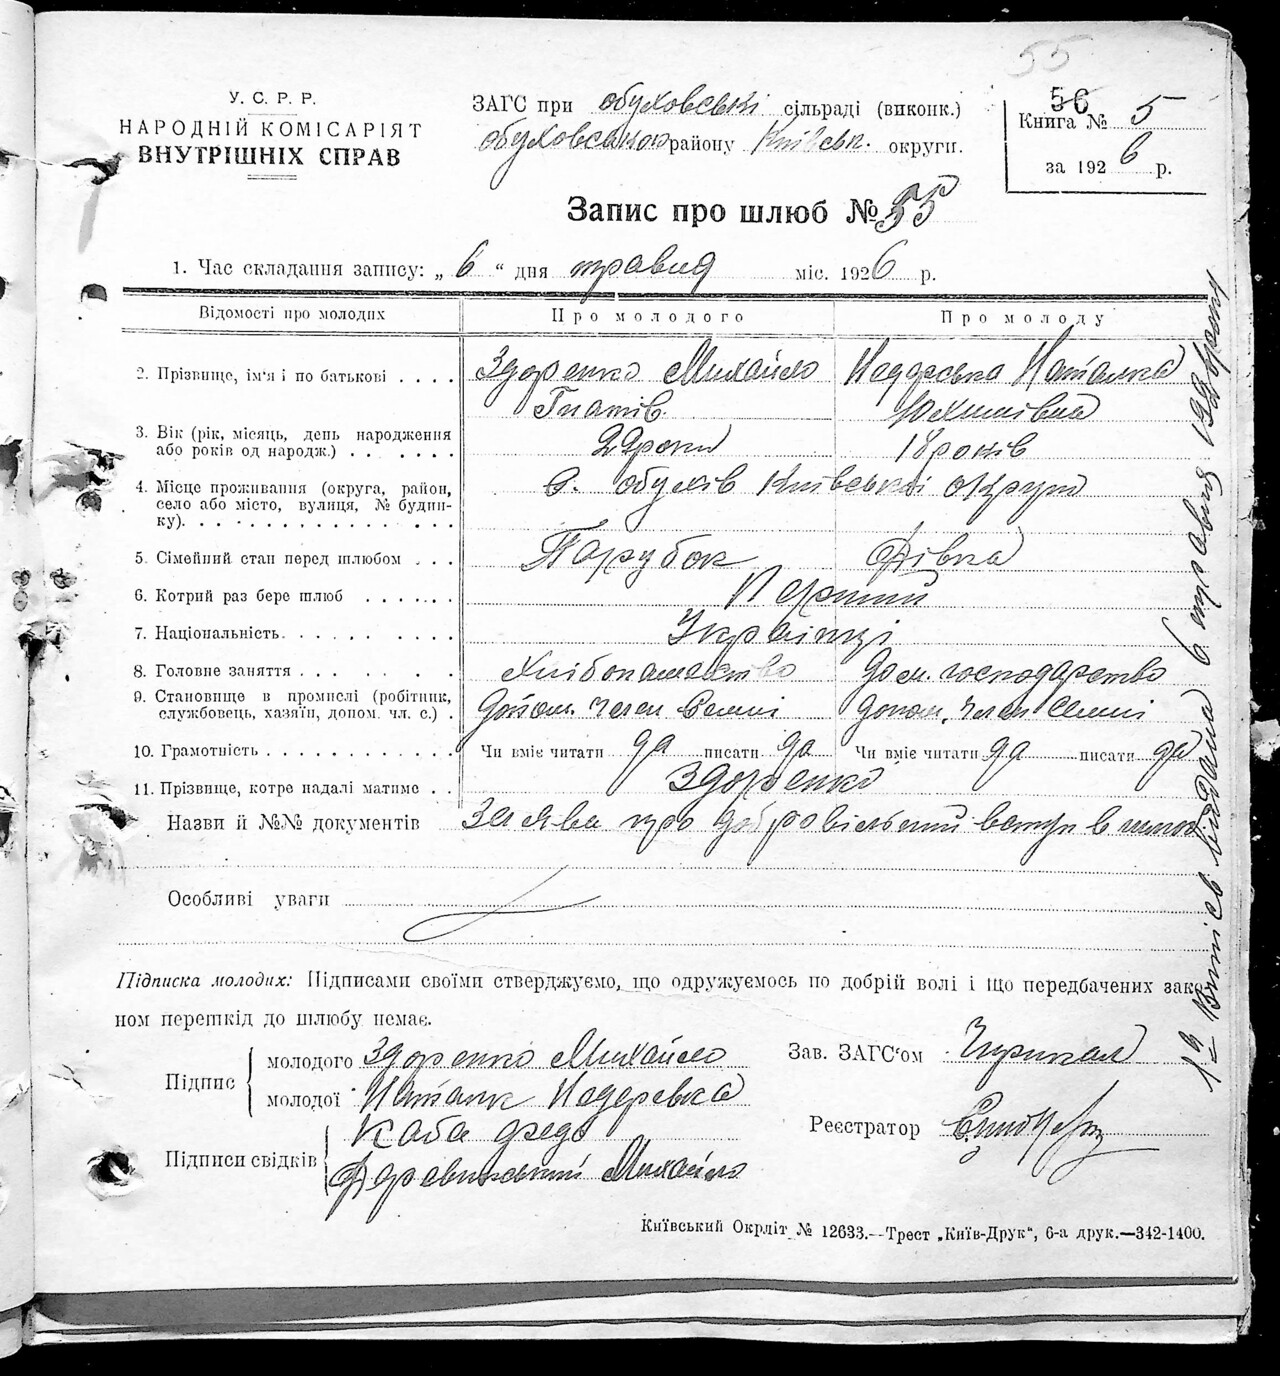 55
У. С. Р. Р.
НАРОДНІЙ КОМІСАРІЯТ
ВНУТРІШНІХ СПРАВ
ЗАГС при обуховські сільраді (виконк.)
району Київськ. округи.
56
Книга № 5
за 1926 р.
Запис про шлюб № 55
1. Час складання запису: „ 6 “ дня травня міс. 1926 р.
Відомості про молодих Про молодого Про молоду
2. Прізвище, ім'я і по батькові . . . . Здоренко Михайло Надорська Наталка
Гнатів. Юхимівна
3. Вік (рік, місяць, день народження
або років од народж.) . . . . . . 22 роки 18 років
4. Місце проживання (округа, район,
село або місто, вулиця, № будин-
ку). с. обухів Київської округи
5. Сімейний стан перед шлюбом . . . Парубок Дівка
6. Котрий раз бере шлюб . . . . . . . Перший
7. Національність. . . . . . . . . . Українці
8. Головне заняття . . . . . . . . . Хлібопашество дом. господарство
9. Становище в промислі (робітник,
службовець, хазяїн, допом. чл. с.) . допом. член семні допом. член семні
10. Грамотність . . . . . . . . . . . Чи вміє читати да писати да Чи вміє читати да писати да
11. Прізвище, котре надалі матиме . . Здоренко
Назви й №№ документів Заява про добровільний вступ в шлюб.
Особливі уваги
Підписка молодих: Підписами своїми стверджуємо, що одружуємось по добрій волі і що передбачених зако-
ном перешкід до шлюбу немає.
Підпис молодого Здоренко Михайло
молодої Наталк
Зав. ЗАГС'ом
Підписи свідків Каба
Деревинський Михайло
Реєстратор
Київський Окрліт № 12633.—Трест „Київ-Друк“, 6-а друк.—342-1400.
Витісь видана 6 травня 192